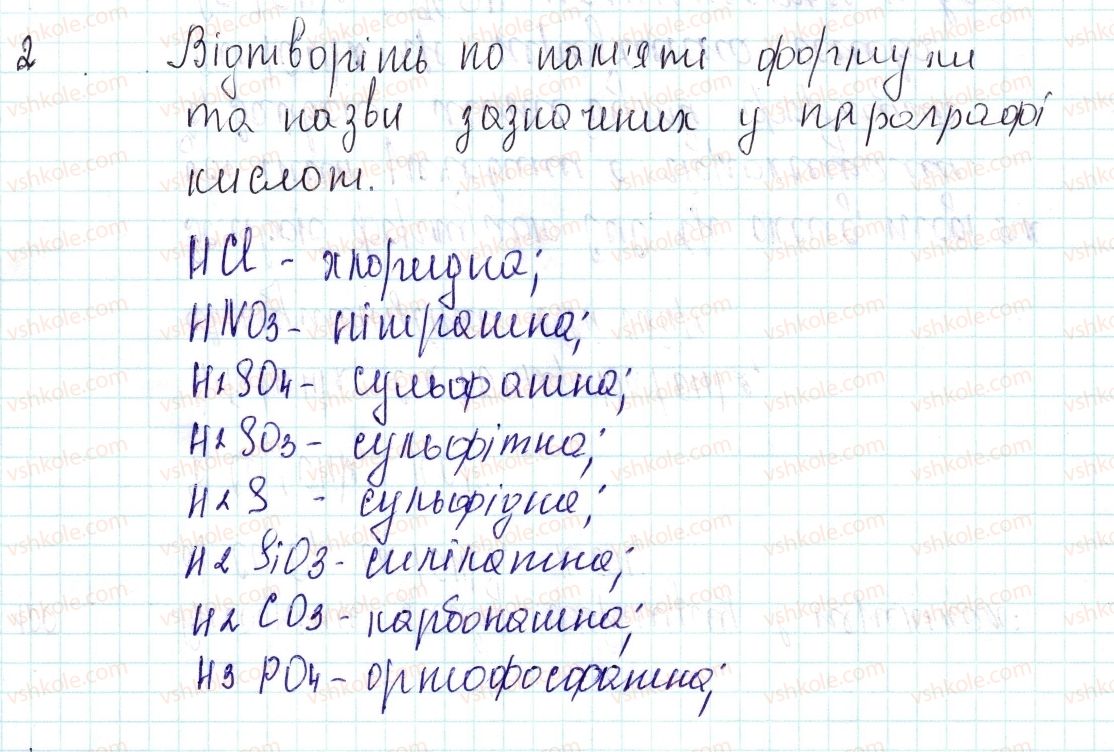 2 Відтворіть по пам'яті формули
та назви зазначених у параграфі
кислот.
HCl - хлоридна;
HNO3 - нітратна;
H2SO4 - сульфатна;
H2SO3 - сульфітна;
H2S - сульфідна;
H2SiO3 - силікатна;
H2CO3 - карбонатна;
H3PO4 - ортофосфатна;